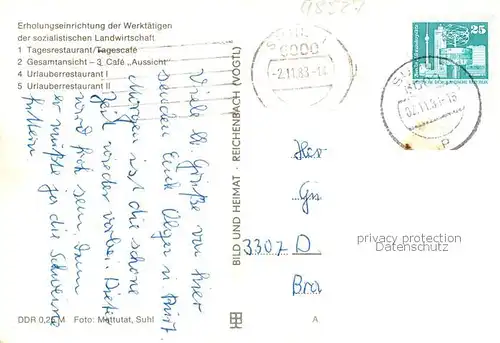 Erholungseinrichtung der Werktätigen
der sozialistischen Landwirtschaft
1 Tagesrestaurant/Tagescafé
2 Gesamtansicht – 3 Café „Aussicht"
4 Urlauberrestaurant I
5 Urlauberrestaurant II
Viele Grüße von hier
senden Euch Olga u.
Morgen ist die schöne
Zeit wieder vorbei. Dieter
wird froh sein, denn
er mußte ja die Schweine
füttern
DDR 0,25 M Foto: Mattutat, Suhl
BILD UND HEIMAT · REICHENBACH (VOGTL)
A
6000
-2.11.83
25
02.11.83-15
Gn
3307 D
Bra
privacy protection
Datenschutz